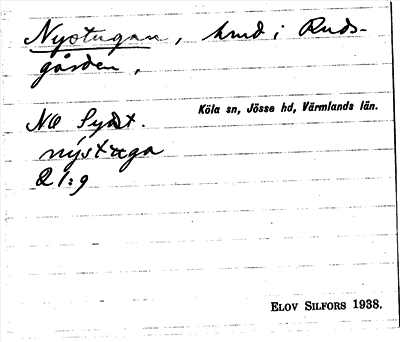 Nystugan, hmd i Ruds-
gården,
Köla sn, Jösse hd, Värmlands län.
NO Sydöst.
nýstuga
21:9
ELOV SILFORS 1938.